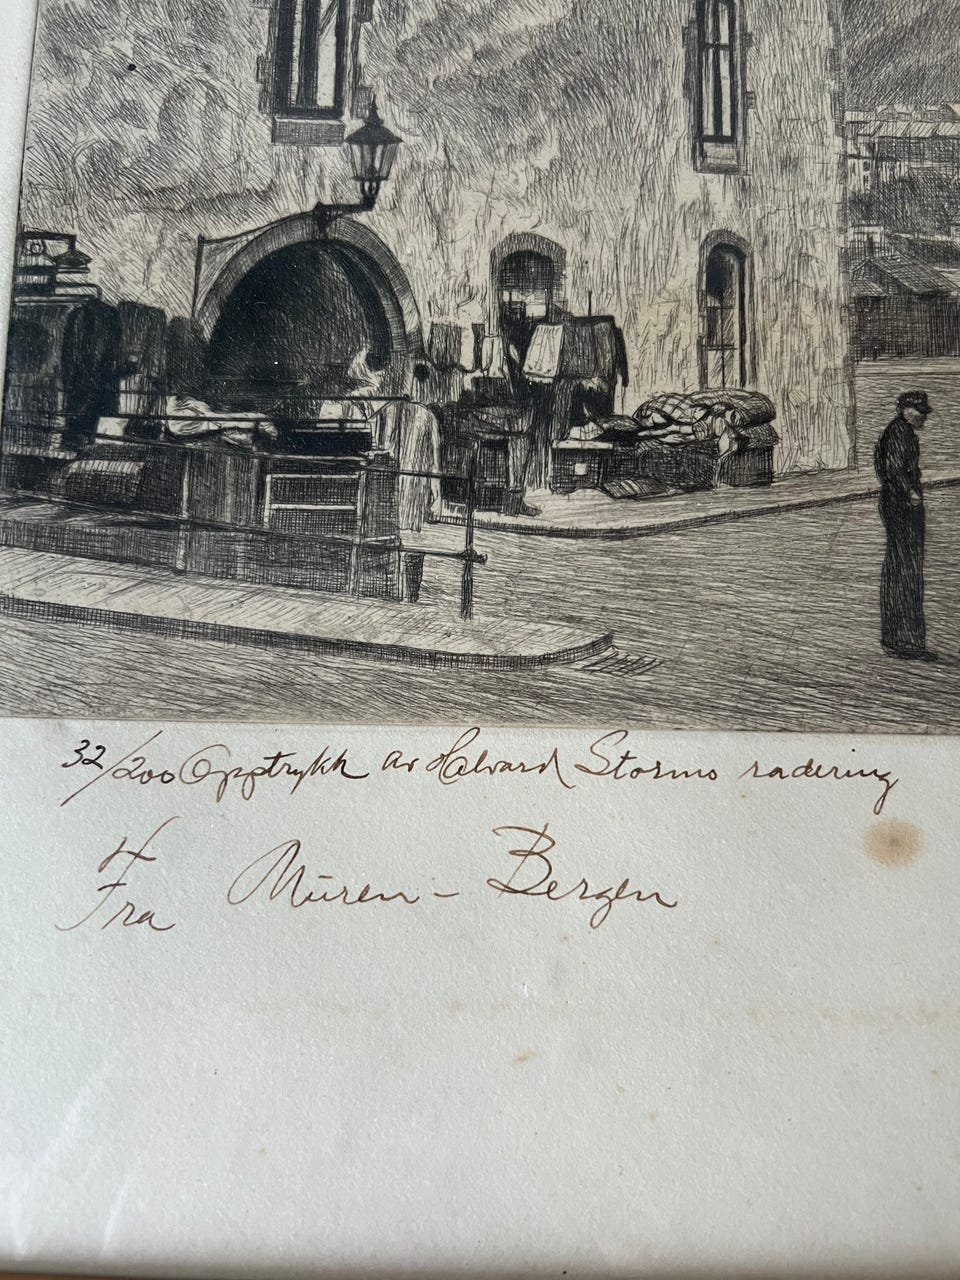 32/200 Opptrykk av Halvard Storms radering
Fra Muren - Bergen